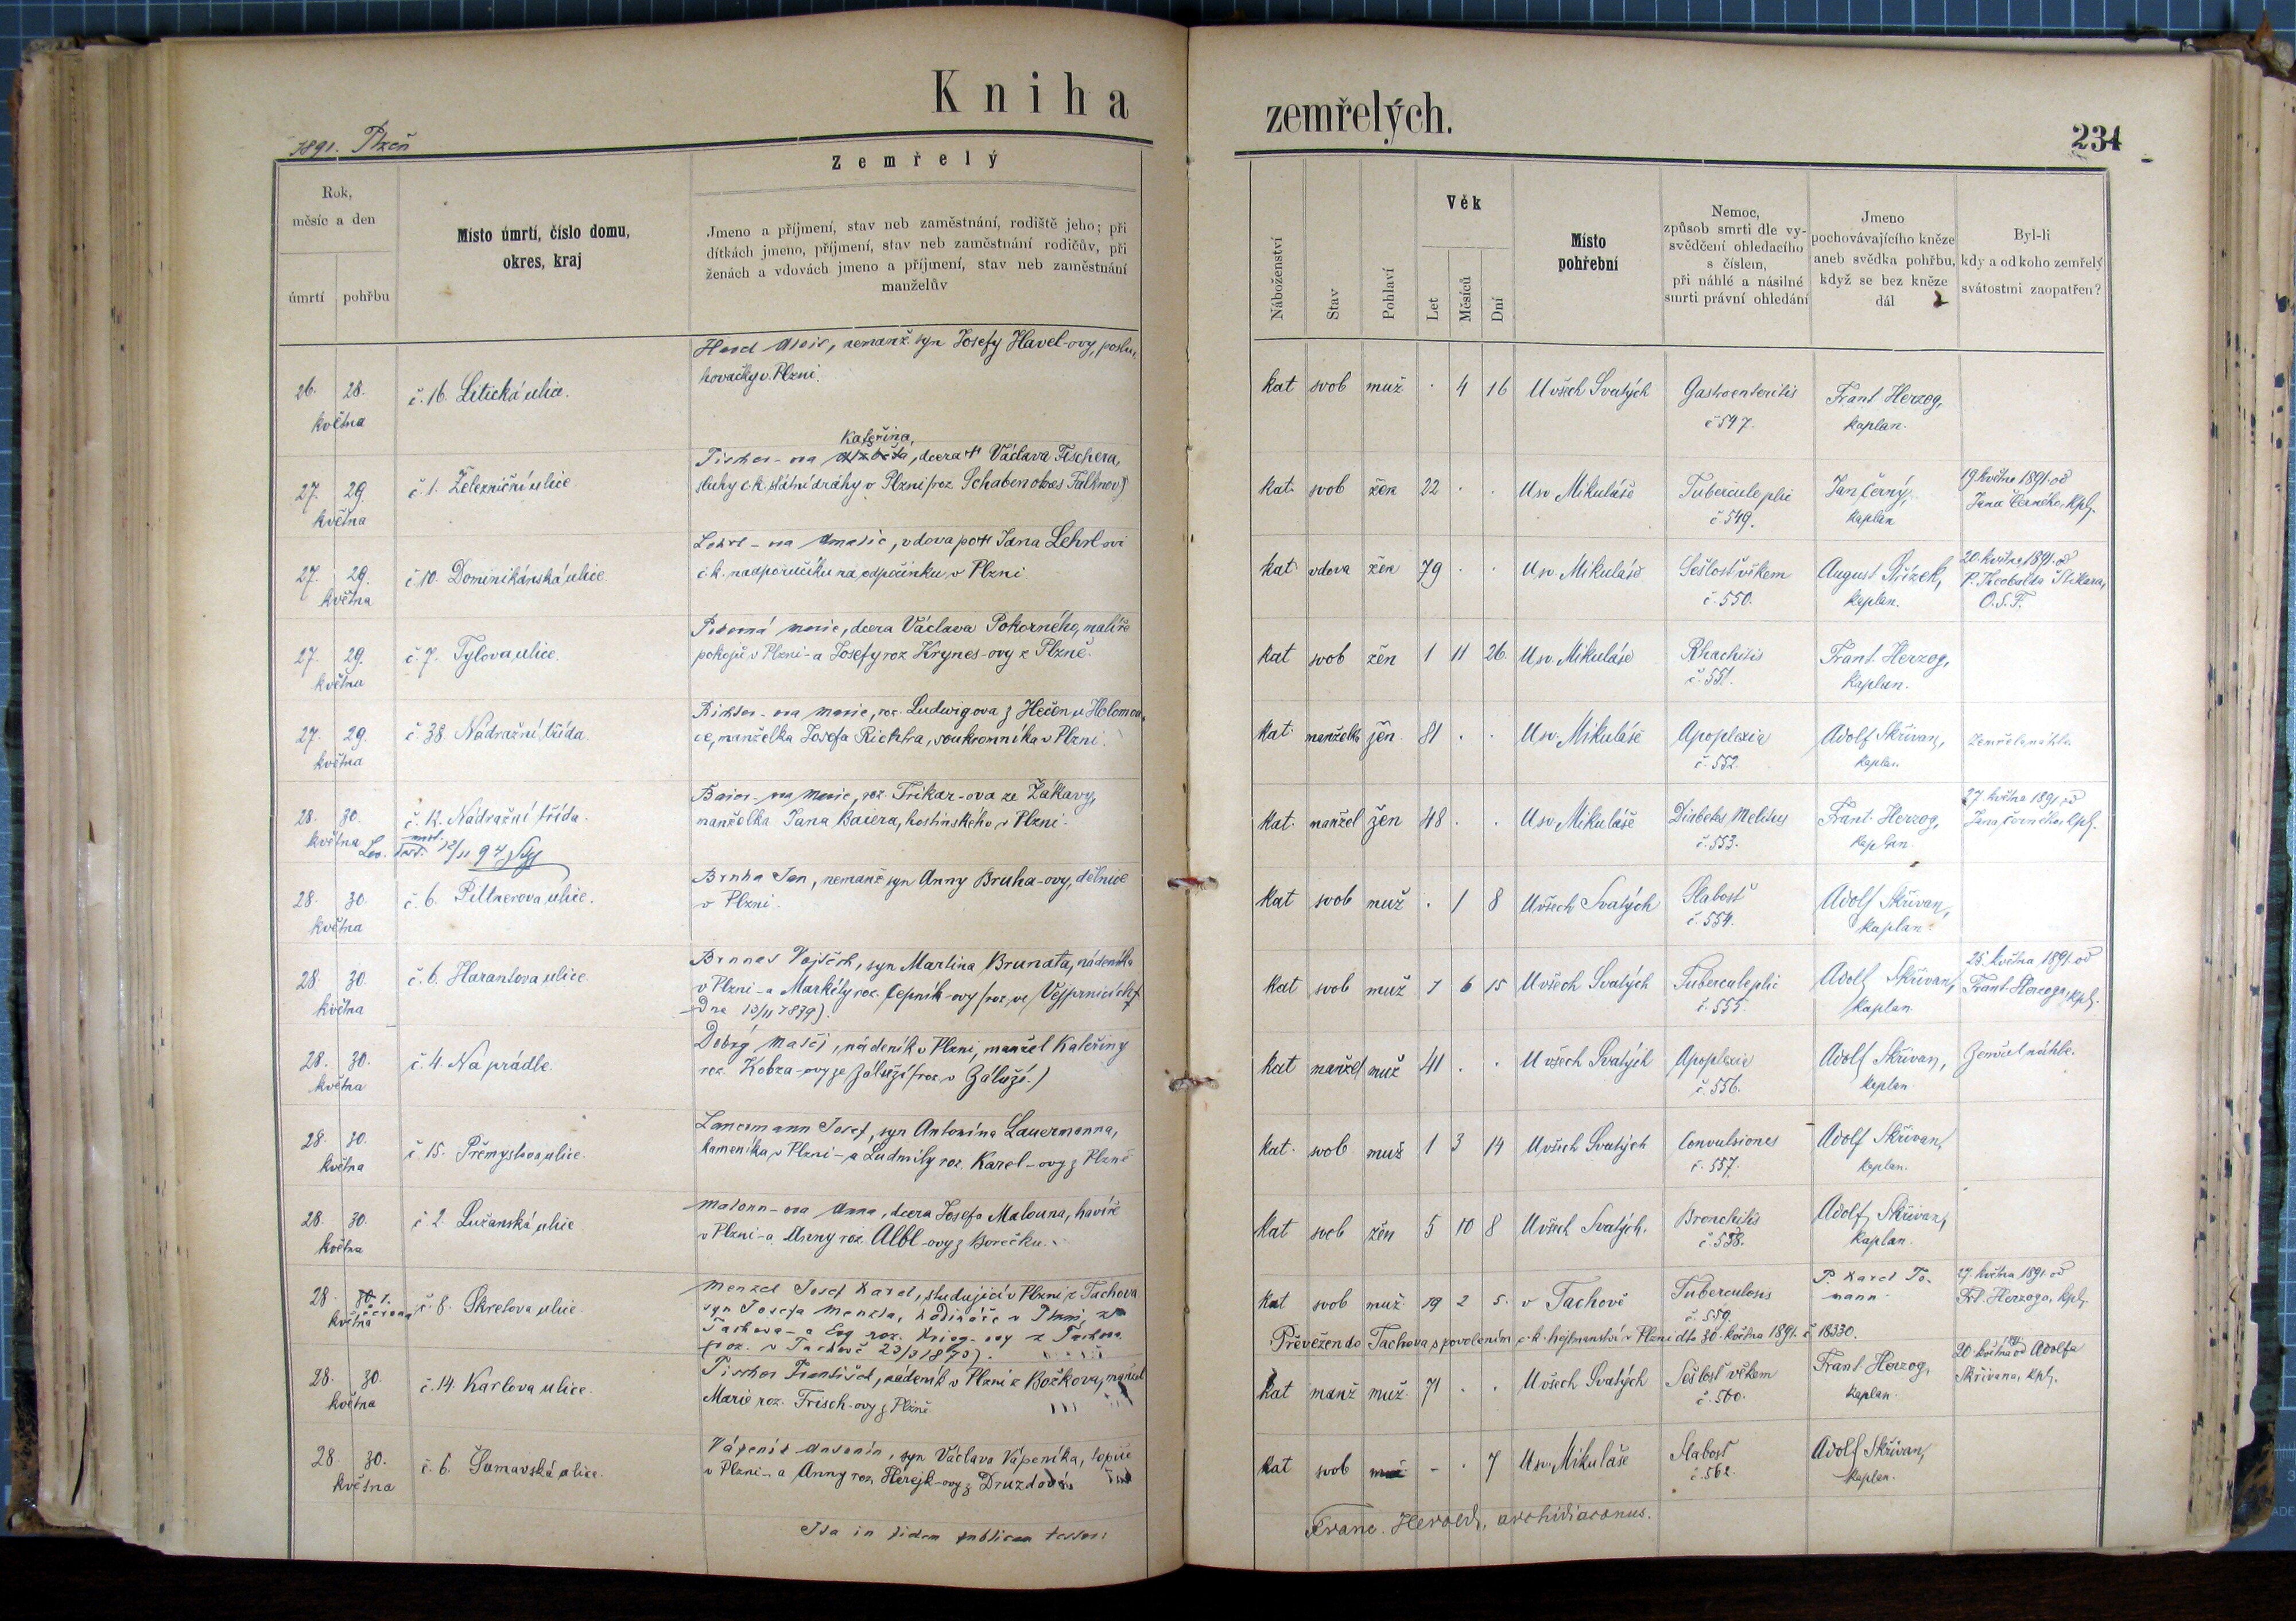 Kniha
zemřelých.
1891. Plzeň
234
Zemřelý
Rok,
měsíc a den
úmrtí
pohřbu
Místo úmrtí, číslo domu,
okres, kraj
Jmeno a příjmení, stav neb zaměstnání, rodiště jeho; při
dítkách jmeno, příjmení, stav neb zaměstnání rodičův, při
ženách a vdovách jmeno a příjmení, stav neb zaměstnání
manželův
Náboženství
Stav
Pohlaví
Věk
Let
Měsíců
Dní
Místo
pohřební
Nemoc,
způsob smrti dle vy-
svědčení ohledacího
s číslem,
při náhlé a násilné
smrti právní ohledání
Jmeno
pochovávajícího kněze
aneb svědka pohřbu,
když se bez kněze
dál
Byl-li
kdy a od koho zemřelý
svátostmi zaopatřen?
26. 28. května
č. 16. Litická ulice.
Alois, nemanž. syn Josefy Havel-ovy, poslu-
hovačky v Plzni.
kat svob muž . 4 16 U všech Svatých Gastroenteritis č 547. Frant. Herzog, kaplan.
27. 29. května
č. 1. Železniční ulice.
Kateřina,
Fischer-ova, dcera †† Václava Fischera,
sluhy c. k. státní dráhy v Plzni (roz. Schaben okres Falknov)
kat. svob žen 22 . . U sv. Mikuláše Tuberculc plic č. 549. Jan Černý, kaplan
19. května 1891. od
Jana Černého, kpl.
27. 29. května
č. 10. Dominikánská ulice.
Lehrl-ova Amalie, vdova po †† Janu Lehrlovi
c. k. nadporučíku na odpočinku v Plzni
kat. vdova žen 79 . . U sv. Mikuláše Sešlosť věkem č. 550. August Střízek, kaplan.
20. května 1891. od
P. Theobalda
O.S.F.
27. 29. května
č. 7. Tylova ulice.
Pokorná Marie, dcera Václava Pokorného, malíře
pokojů v Plzni - a Josefy roz. Krynes-ovy z Plzně.
kat svob žen 1 11 26. U sv. Mikuláše Rhachitis č. 551. Frant. Herzog, kaplan.
27. 29. května
č. 38 Nádražní třída.
Richter-ova Marie, roz. Ludwigova z Hečen u Holomou-
ce, manželka Josefa Richtra, soukromníka v Plzni.
kat. manželka žen. 81 . . U sv. Mikuláše Apoplexia č. 552. Adolf Skřivan, kaplan
Zemřela náhle.
28. 30. května
č. 12. Nádražní třída.
Baier-ova Marie, roz. Trikar-ova ze Žákavy,
manželka Jana Baiera, hostinského v Plzni.
kat. manžel žen 48 . . U sv. Mikuláše Diabetes Melitus č. 553. Frant. Herzog, kaplan
27. května 1891. od
Jana Černého, kpl.
28. 30. května
č. 6. Pittnerova ulice.
Bruha Jan, nemanž syn Anny Bruha-ovy, dělnice
v Plzni.
kat svob muž . 1 8 U všech Svatých Slabosť č. 554. Adolf Skřivan, kaplan
28. 30. května
č. 6. Harantova ulice
Brunat Vojtěch, syn Martina Brunata, nádeníka
v Plzni - a Markéty roz. Cepník-ovy (roz. ve Vejprnicích
Dne 13/11 1889).
kat svob muž 1 6 15 U všech Svatých Tuberculc plic č. 555. Adolf Skřivan, kaplan.
25. května 1891. od
Frant. Herzoga, kpl.
28. 30. května
č. 4. Na prádle.
Dobrý Matěj, nádeník v Plzni, manžel Kateřiny
roz. Kobza-ovy ze Zaluží (roz. v Zaluží.)
kat manžel muž 41 . . U všech Svatých Apoplexia č. 556. Adolf Skřivan, kaplan
Zemřel náhle.
28. 30. května
č 15. Přemyslova ulice.
Lauermann Josef, syn Antonína Lauermanna,
kameníka v Plzni - a Ludmily roz. Karel-ovy z Plzně
kat. svob muž 1 3 14 U všech Svatých Convulsiones č. 557. Adolf Skřivan, kaplan.
28. 30. května
č 2. Lužanská ulice
Matoun-ova Anna, dcera Josefa Matouna, havíře
v Plzni - a Anny roz. Albl-ovy z Borečku.
kat svob žen 5 10 8 U všech Svatých. Bronchitis č. 558. Adolf Skřivan, kaplan.
28. května 1. června
č. 8. Skretova ulice.
Menzel Josef Karel, studující v Plzni z Tachova
syn Josefa Menzla, hodináře v Plzni, z
Tachova - a Evy roz. Krieg-ovy z Tachova
(roz. v Tachově 23/3 1872).
kat svob muž 19 2 5. v Tachově Tuberculosis č. 559. P. Karel To-
mann
27. května 1891. od
Frt. Herzoga, kpl.
Převežen do Tachova s povolením c. k. hejtmanství v Plzni dto 30. května 1891. č 18330.
28. 30. května
č. 14. Karlova ulice.
Fischer František, nádeník v Plzni z Božkova, manžel
Marie roz. Frisch-ovy z Plzně.
kat manž muž. 71 . . U všech Svatých Sešlosť věkem č. 560. Frant Herzog, kaplan.
20. května od Adolfa
Skřivana, kpl.
28. 30. května
č. 6. Šumavská ulice.
Vápeník Antonín, syn Václava Vápeníka, topiče
v Plzni - a Anny roz. Herejk-ovy z Druzdové
kat svob muž - . 7 U sv. Mikuláše Slabosť č. 562. Adolf Skřivan, kaplan.
Ita in fidem publicam testor:
Franc. Herold, archidiaconus.